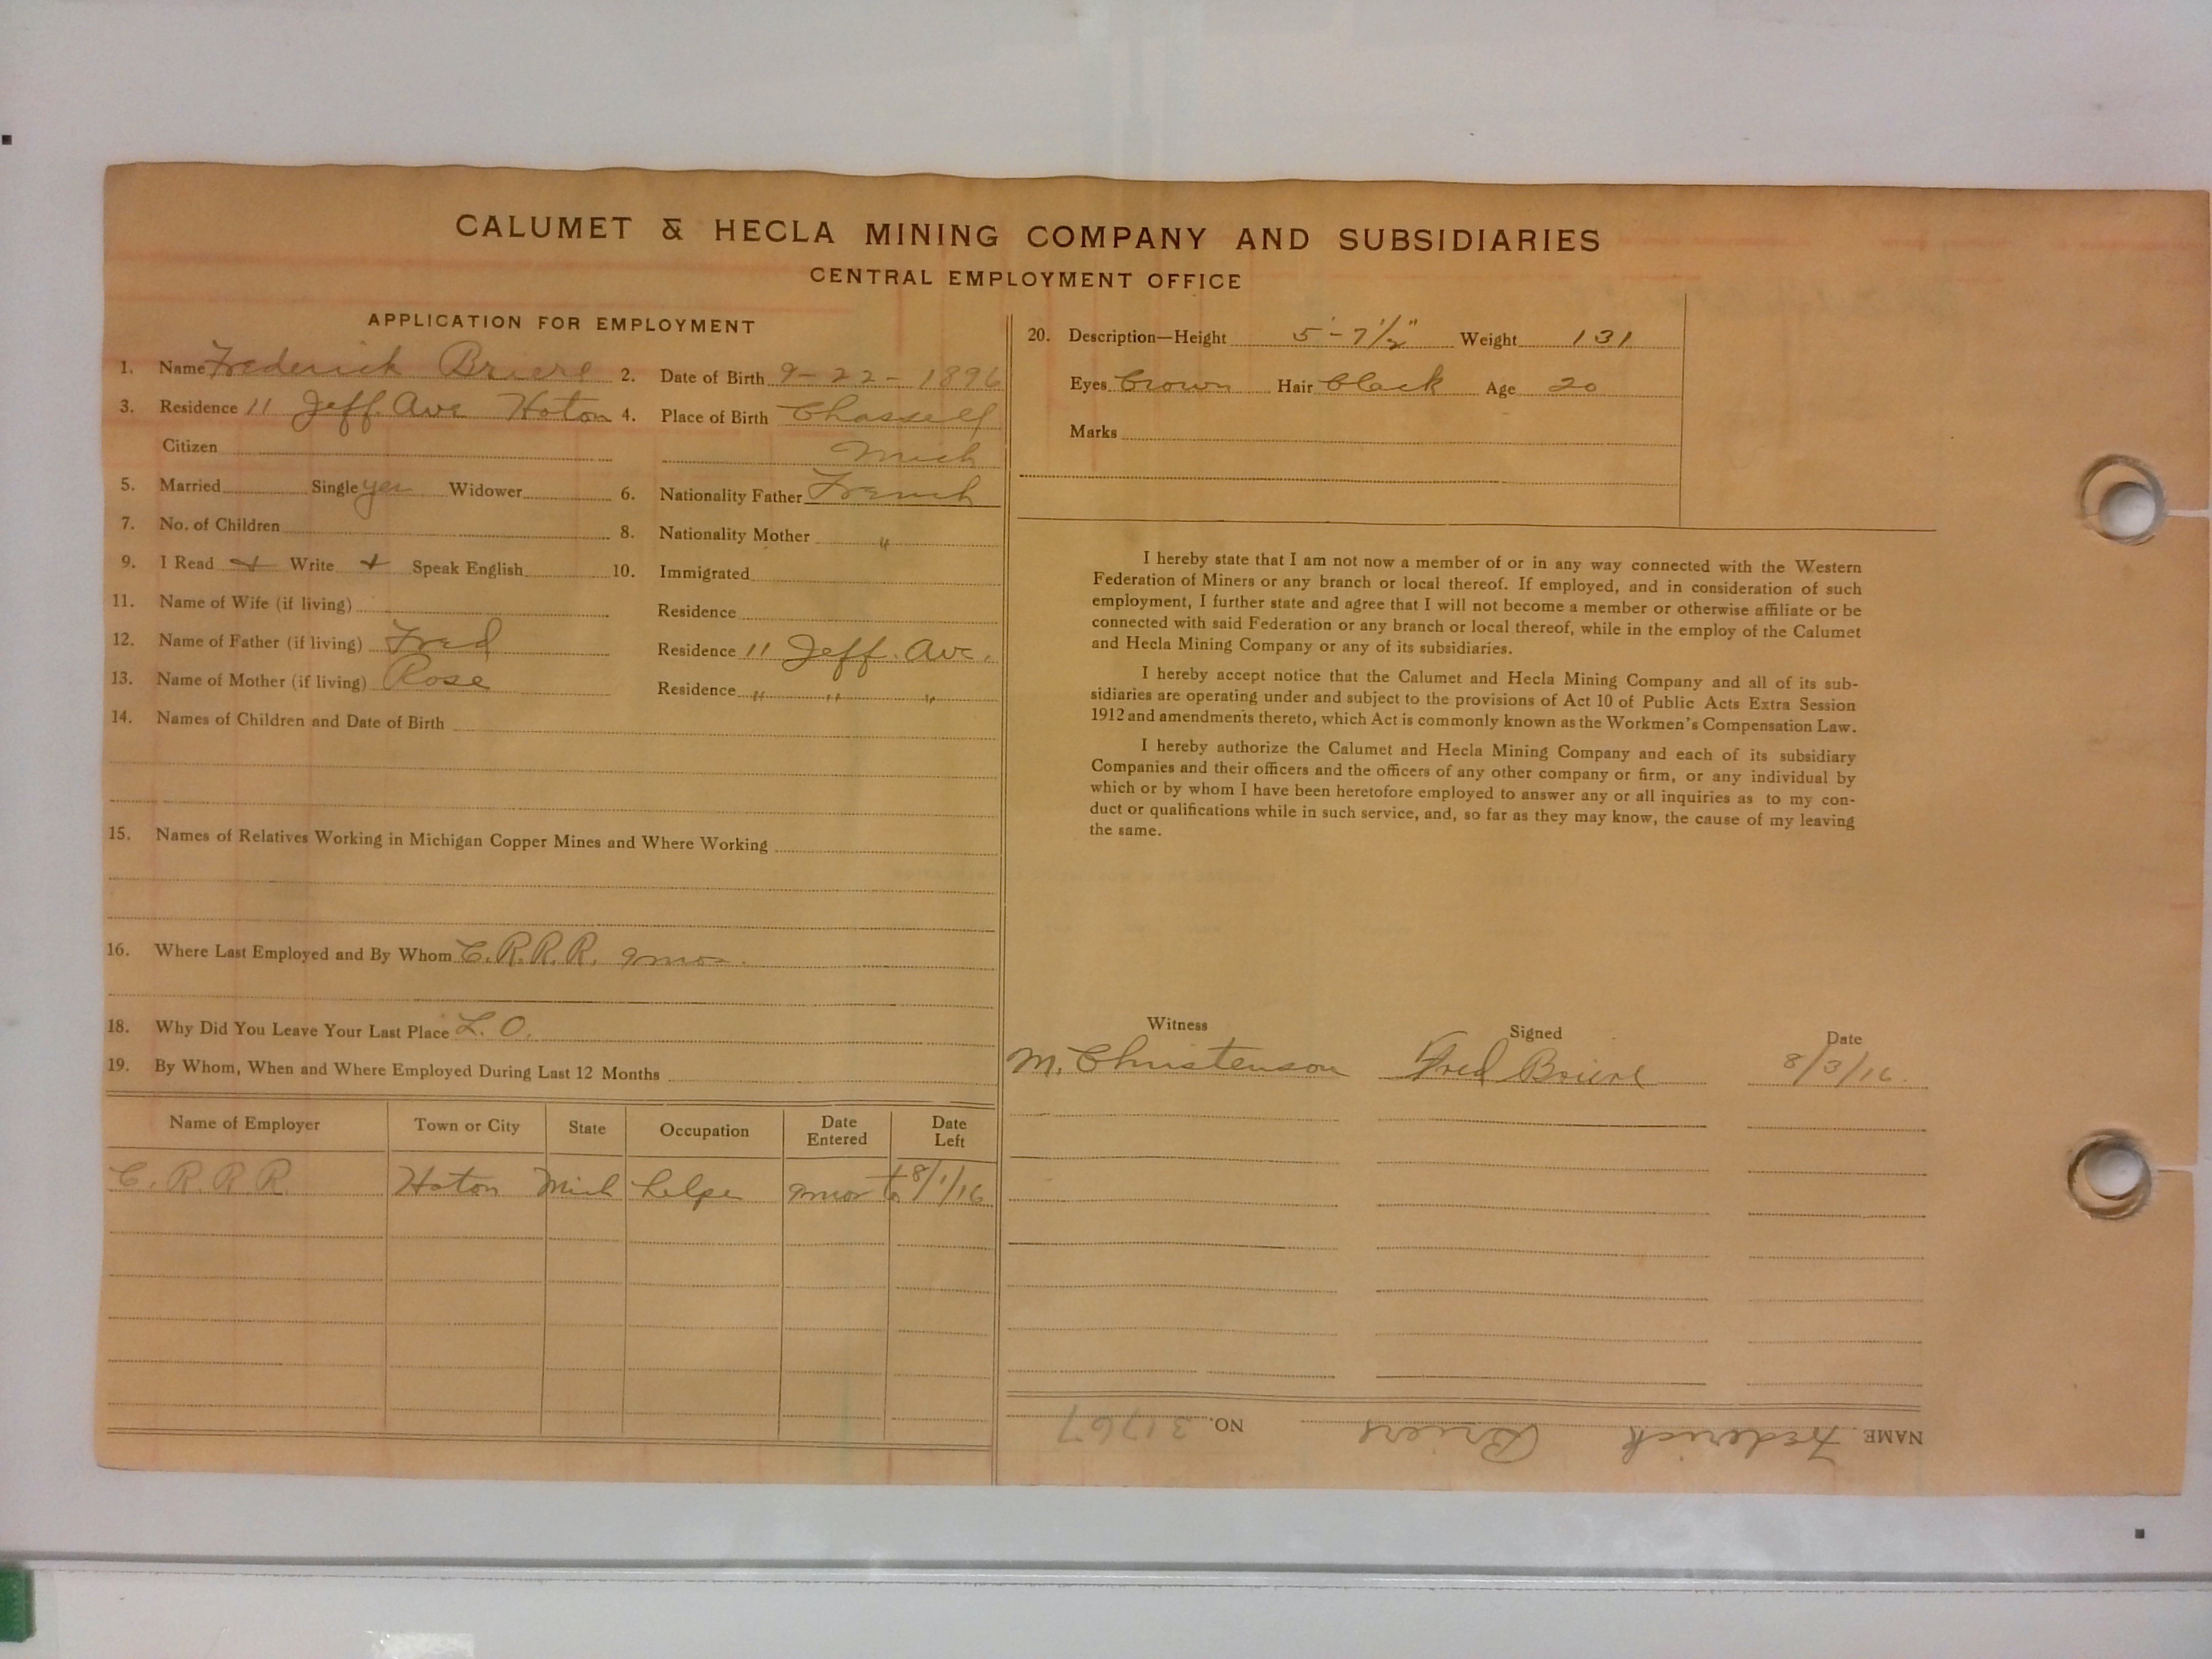 CALUMET & HECLA MINING COMPANY AND SUBSIDIARIES
CENTRAL EMPLOYMENT OFFICE
APPLICATION FOR EMPLOYMENT
1. Name Frederick Briere 2. Date of Birth 9-22-1896
3. Residence 11 Jeff. Ave Hoton 4. Place of Birth Chassell
Citizen Mich
5. Married Single yes Widower 6. Nationality Father French
7. No. of Children 8. Nationality Mother "
9. I Read + Write + Speak English 10. Immigrated
11. Name of Wife (if living) Residence
12. Name of Father (if living) Fred Residence 11 Jeff. Ave.
13. Name of Mother (if living) Rose Residence " " "
14. Names of Children and Date of Birth
15. Names of Relatives Working in Michigan Copper Mines and Where Working
16. Where Last Employed and By Whom C.R.R.R. 9mos.
18. Why Did You Leave Your Last Place L.O.
19. By Whom, When and Where Employed During Last 12 Months
Name of Employer Town or City State Occupation Date Entered Date Left
C.R.R.R Hoton Mich helper 9mos to 8/1/16
20. Description—Height 5'-7 1/2" Weight 131
Eyes brown Hair black Age 20
Marks
I hereby state that I am not now a member of or in any way connected with the Western
Federation of Miners or any branch or local thereof. If employed, and in consideration of such
employment, I further state and agree that I will not become a member or otherwise affiliate or be
connected with said Federation or any branch or local thereof, while in the employ of the Calumet
and Hecla Mining Company or any of its subsidiaries.
I hereby accept notice that the Calumet and Hecla Mining Company and all of its sub-
sidiaries are operating under and subject to the provisions of Act 10 of Public Acts Extra Session
1912 and amendments thereto, which Act is commonly known as the Workmen's Compensation Law.
I hereby authorize the Calumet and Hecla Mining Company and each of its subsidiary
Companies and their officers and the officers of any other company or firm, or any individual by
which or by whom I have been heretofore employed to answer any or all inquiries as to my con-
duct or qualifications while in such service, and, so far as they may know, the cause of my leaving
the same.
Witness Signed Date
M. Christenson Fred Briere 8/3/16.
NAME Frederick Briere NO. 31767